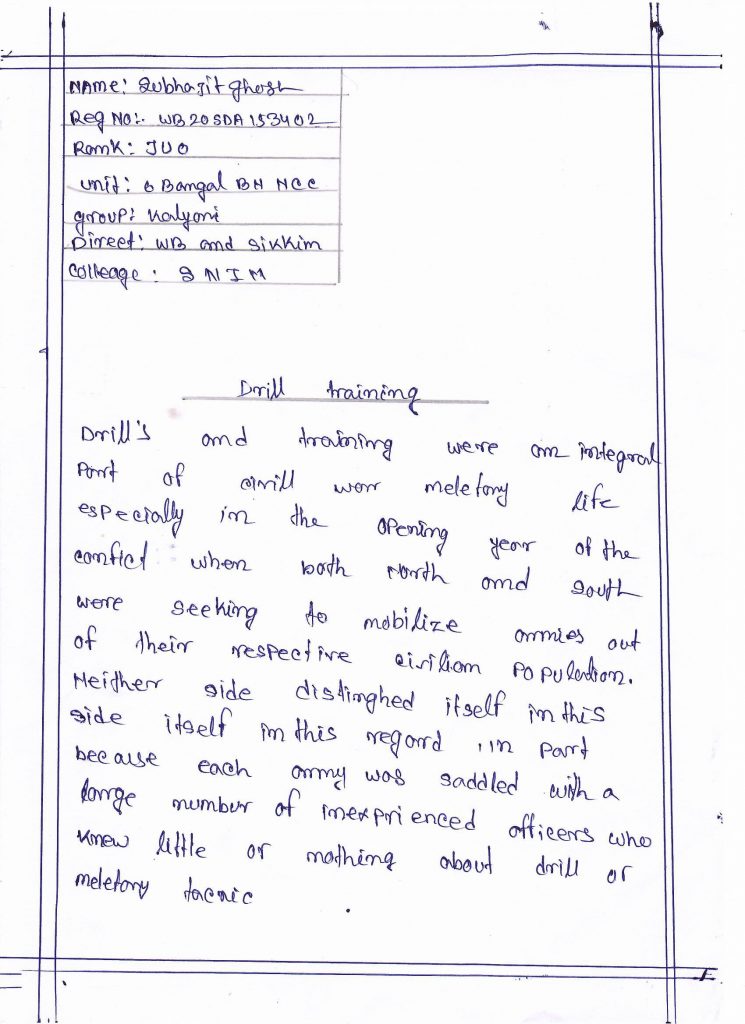 Name: Subhajit ghosh
Reg No:. WB20SDA153402
Rank: JUO
unit: 6 Bangal BN NCC
group: Kalyani
Direct: WB and Sikkim
Colleage: SNIM
Drill training
Drill's and training were an integral
Part of civill warr meletary life
especially in the opening year of the
confict when both North and South
were seeking to mobilize armies out
of their respective civilian population.
Neither side distinghed itself in this
side itself in this regard , in part
because each army was saddled with a
large number of inexprienced officers who
knew little or nothing about drill or
meletary tacnic .